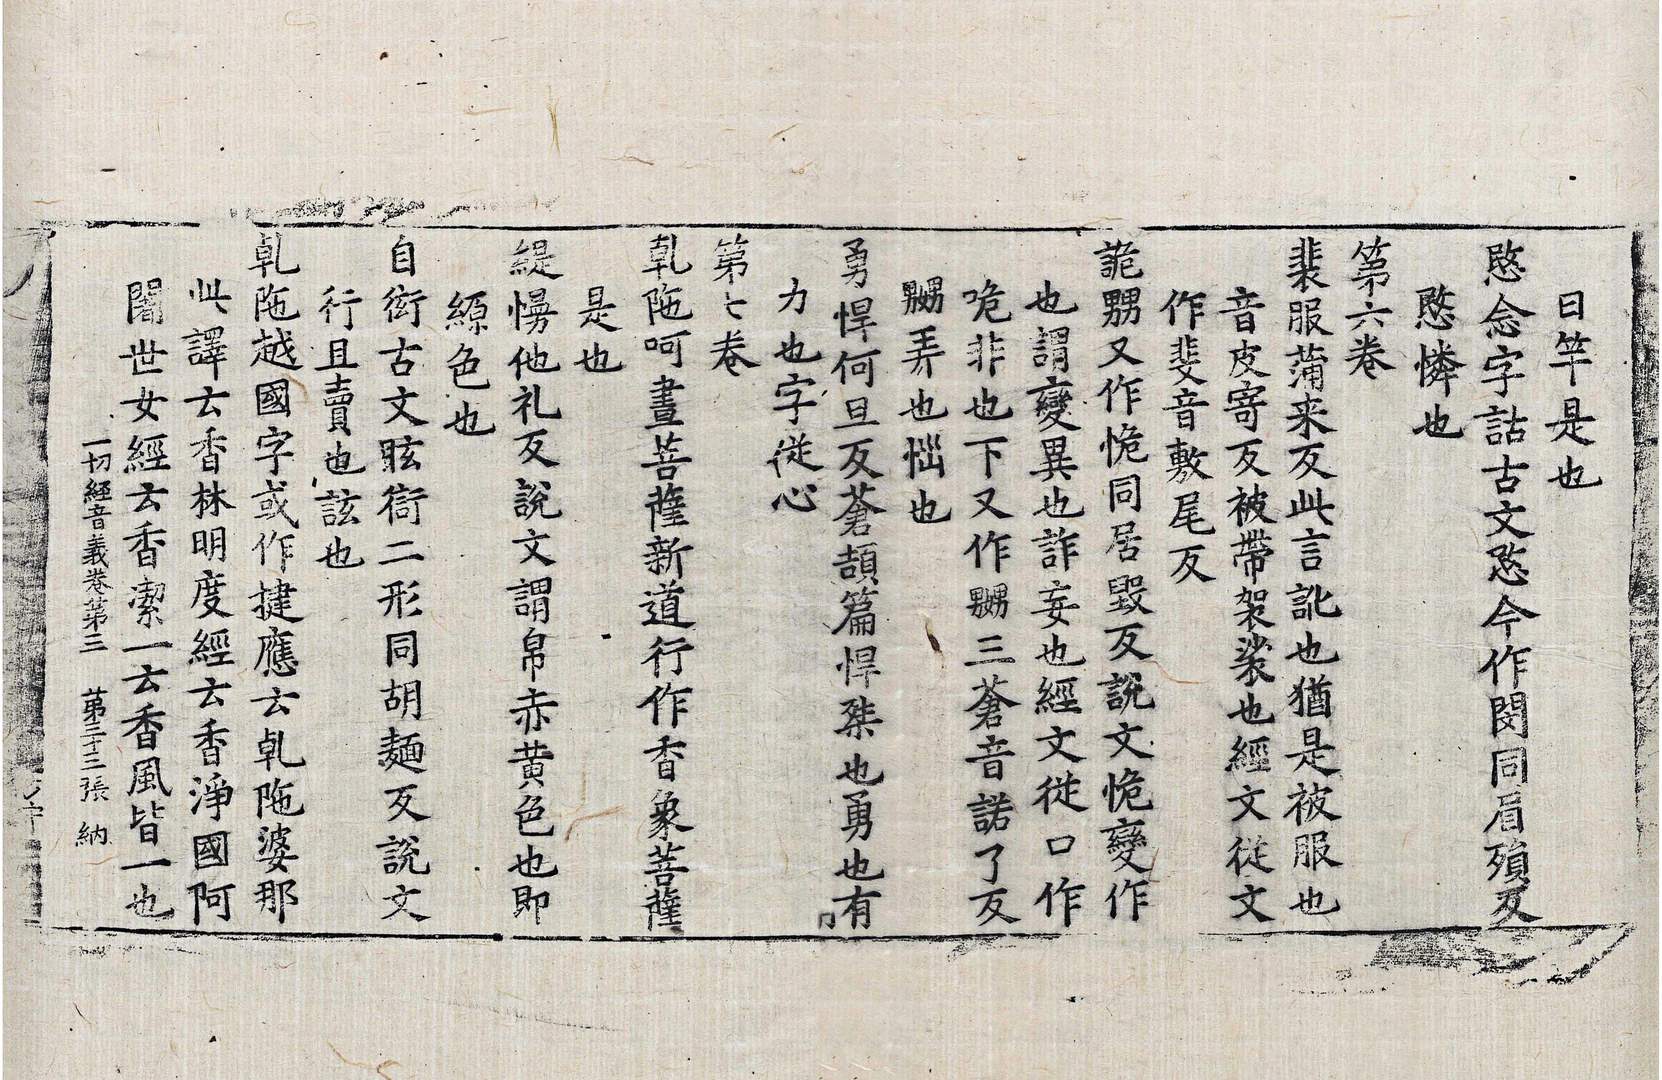 日竿是也
愍念字詁古文愍今作閔同眉殞反
愍憐也
第六卷
裴服蒲来反此言訛也猶是被服也
音皮寄反被帶袈裟也經文從文
作斐音敷尾反
詭嬲又作恑同居毀反說文恑變作
也謂變異也詐妄也經文從口作
咙非也下又作嬲三蒼音諾了反
嬲弄也惱也
勇悍何旦反蒼頡篇悍桀也勇也有
力也字從心
第七卷
乹陁呵晝菩薩新道行作香象菩薩
是也
緹慢他礼反說文謂帛赤黄色也即
縓色也
自衒古文眩衒二形同胡麺反說文
行且賣也該也
乹陁越國字或作揵應云乹陁婆那
此譯云香林明度經云香淨國阿
闍世女經云香潔一云香風皆一也
一切經音義卷第三 第二十三張 納